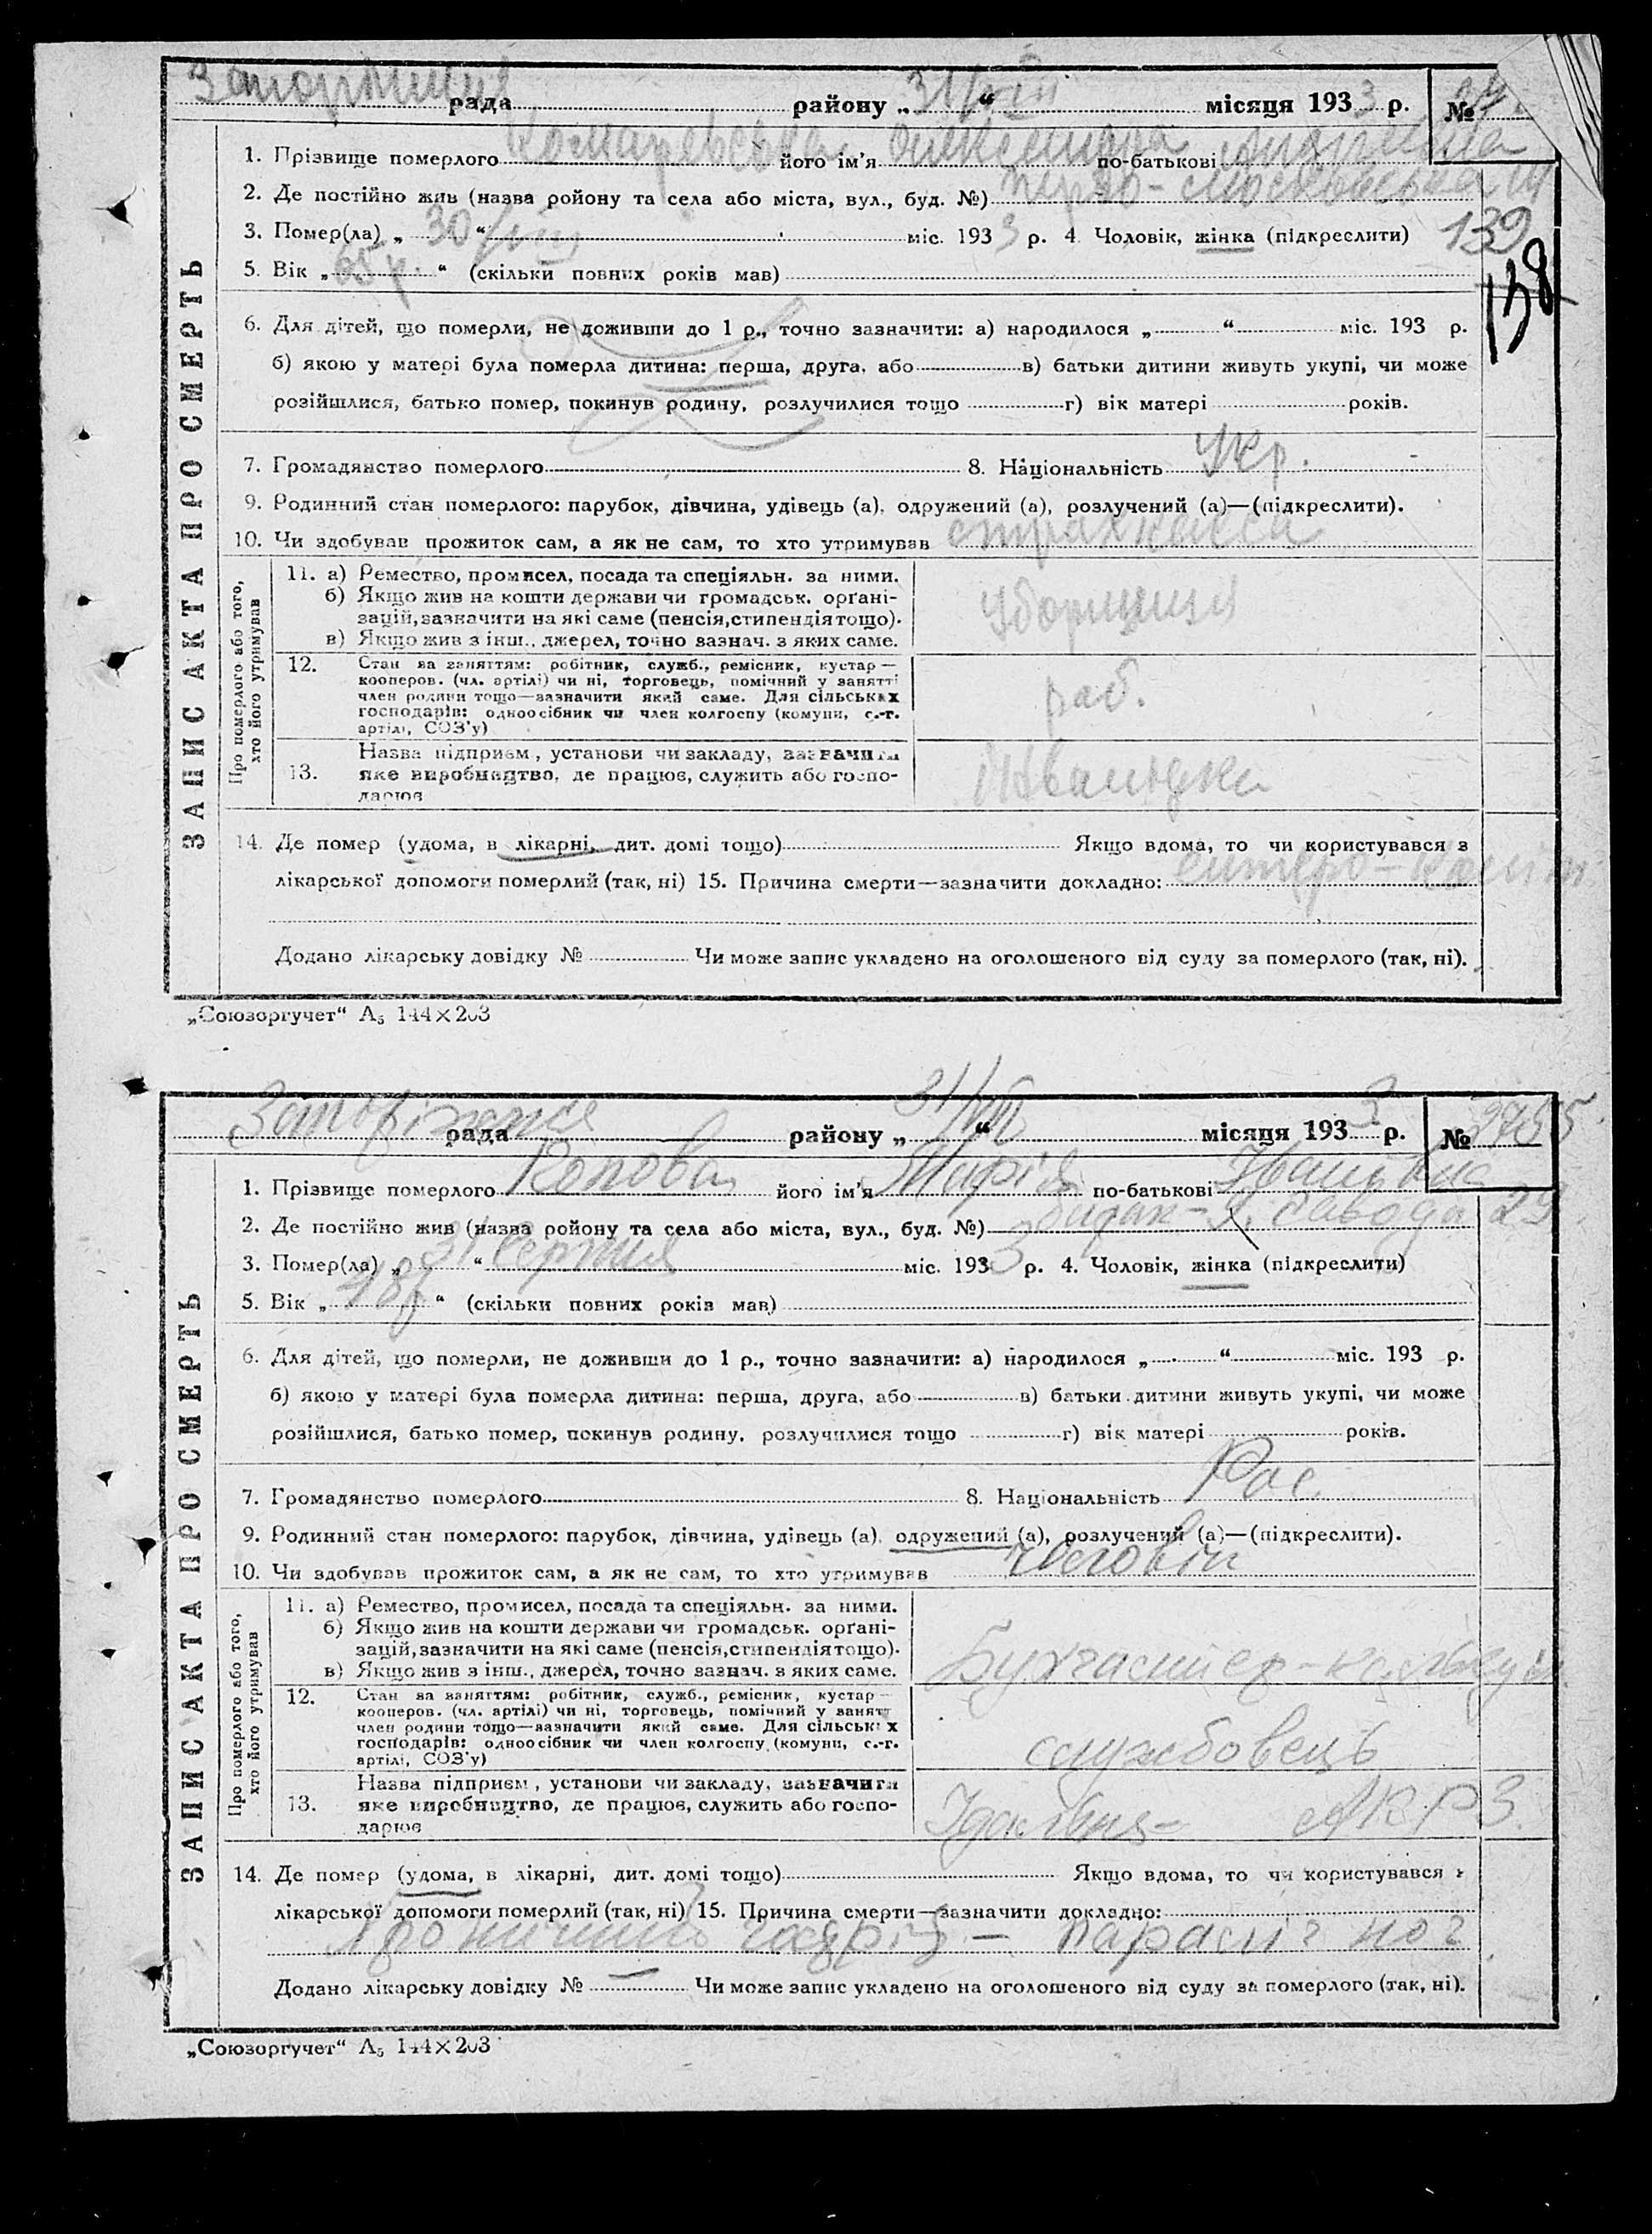 Запоріжжя рада району „ 31/VIII “ місяця 1933 р. №
1. Прізвище померлого його ім'я по-батькові
2. Де постійно жив (назва ройону та села або міста, вул., буд. №)
139
3. Помер(ла) „ 30/VIII “ міс. 1933 р. 4 Чоловік, жінка (підкреслити)
138
5. Вік „ 65 р. “ (скільки повних років мав)
6. Для дітей, що померли, не доживши до 1 р., точно зазначити: а) народилося „ “ міс. 193 р.
б) якою у матері була померла дитина: перша, друга, або в) батьки дитини живуть укупі, чи може
розійшлися, батько помер, покинув родину, розлучилися тощо г) вік матері років.
7. Громадянство померлого 8. Національність Укр.
9. Родинний стан померлого: парубок, дівчина, удівець (а), одружений (а), розлучений (а)—(підкреслити).
10. Чи здобував прожиток сам, а як не сам, то хто утримував страхкасса
ЗАПИС АКТА ПРО СМЕРТЬ
Про померлого або того,
хто його утримував
11. а) Ремество, промисел, посада та спеціяльн. за ними.
б) Якщо жив на кошти держави чи громадськ. орґані-
зацій, зазначити на які саме (пенсія, стипендія тощо).
в) Якщо жив з інш., джерел, точно зазнач. з яких саме.
Уборщиця
12. Стан за заняттям: робітник, служб., ремісник, кустар—
кооперов. (чл. артілі) чи ні, торговець, помічний у занятті
член родини тощо—зазначити який саме. Для сільських
господарів: одноосібник чи член колгоспу (комуни, с.-г.
артілі, СОЗ'у)
раб.
13. Назва підприєм, установи чи закладу, зазначити
яке виробництво, де працює, служить або госпо-
дарює
14. Де помер (удома, в лікарні, дит. домі тощо) Якщо вдома, то чи користувався з
лікарської допомоги померлий (так, ні) 15. Причина смерти—зазначити докладно:
Додано лікарську довідку № Чи може запис укладено на оголошеного від суду за померлого (так, ні).
„Союзоргучет“ А₅ 144×203
Запоріжжя рада району „ 31/VIII “ місяця 1933 р. №
1. Прізвище померлого Попова його ім'я Марія по-батькові Іванівна
2. Де постійно жив (назва ройону та села або міста, вул., буд. №) 29
3. Помер(ла) „ 31 “ серпня міс. 1933 р. 4. Чоловік, жінка (підкреслити)
5. Вік „ “ (скільки повних років мав)
6. Для дітей, що померли, не доживши до 1 р., точно зазначити: а) народилося „ “ міс. 193 р.
б) якою у матері була померла дитина: перша, друга, або в) батьки дитини живуть укупі, чи може
розійшлися, батько помер, покинув родину, розлучилися тощо г) вік матері років.
7. Громадянство померлого 8. Національність Рос.
9. Родинний стан померлого: парубок, дівчина, удівець (а), одружений (а), розлучений (а)—(підкреслити).
10. Чи здобував прожиток сам, а як не сам, то хто утримував Чоловік
ЗАПИС АКТА ПРО СМЕРТЬ
Про померлого або того,
хто його утримував
11. а) Ремество, промисел, посада та спеціяльн. за ними.
б) Якщо жив на кошти держави чи громадськ. орґані-
зацій, зазначити на які саме (пенсія, стипендія тощо).
в) Якщо жив з інш., джерел, точно зазнач. з яких саме.
Бухгалтер-калькул.
12. Стан за заняттям: робітник, служб., ремісник, кустар—
кооперов. (чл. артілі) чи ні, торговець, помічний у занятт
член родини тощо—зазначити який саме. Для сільських
господарів: одноосібник чи член колгоспу (комуни, с.-г.
артілі, СОЗ'у)
службовець
13. Назва підприєм, установи чи закладу, зазначити
яке виробництво, де працює, служить або госпо-
дарює
Їдальня-
14. Де помер (удома, в лікарні, дит. домі тощо) Якщо вдома, то чи користувався з
лікарської допомоги померлий (так, ні) 15. Причина смерти—зазначити докладно:
Хронічний — параліч ног
Додано лікарську довідку № — Чи може запис укладено на оголошеного від суду за померлого (так, ні).
„Союзоргучет“ А₅ 144×203